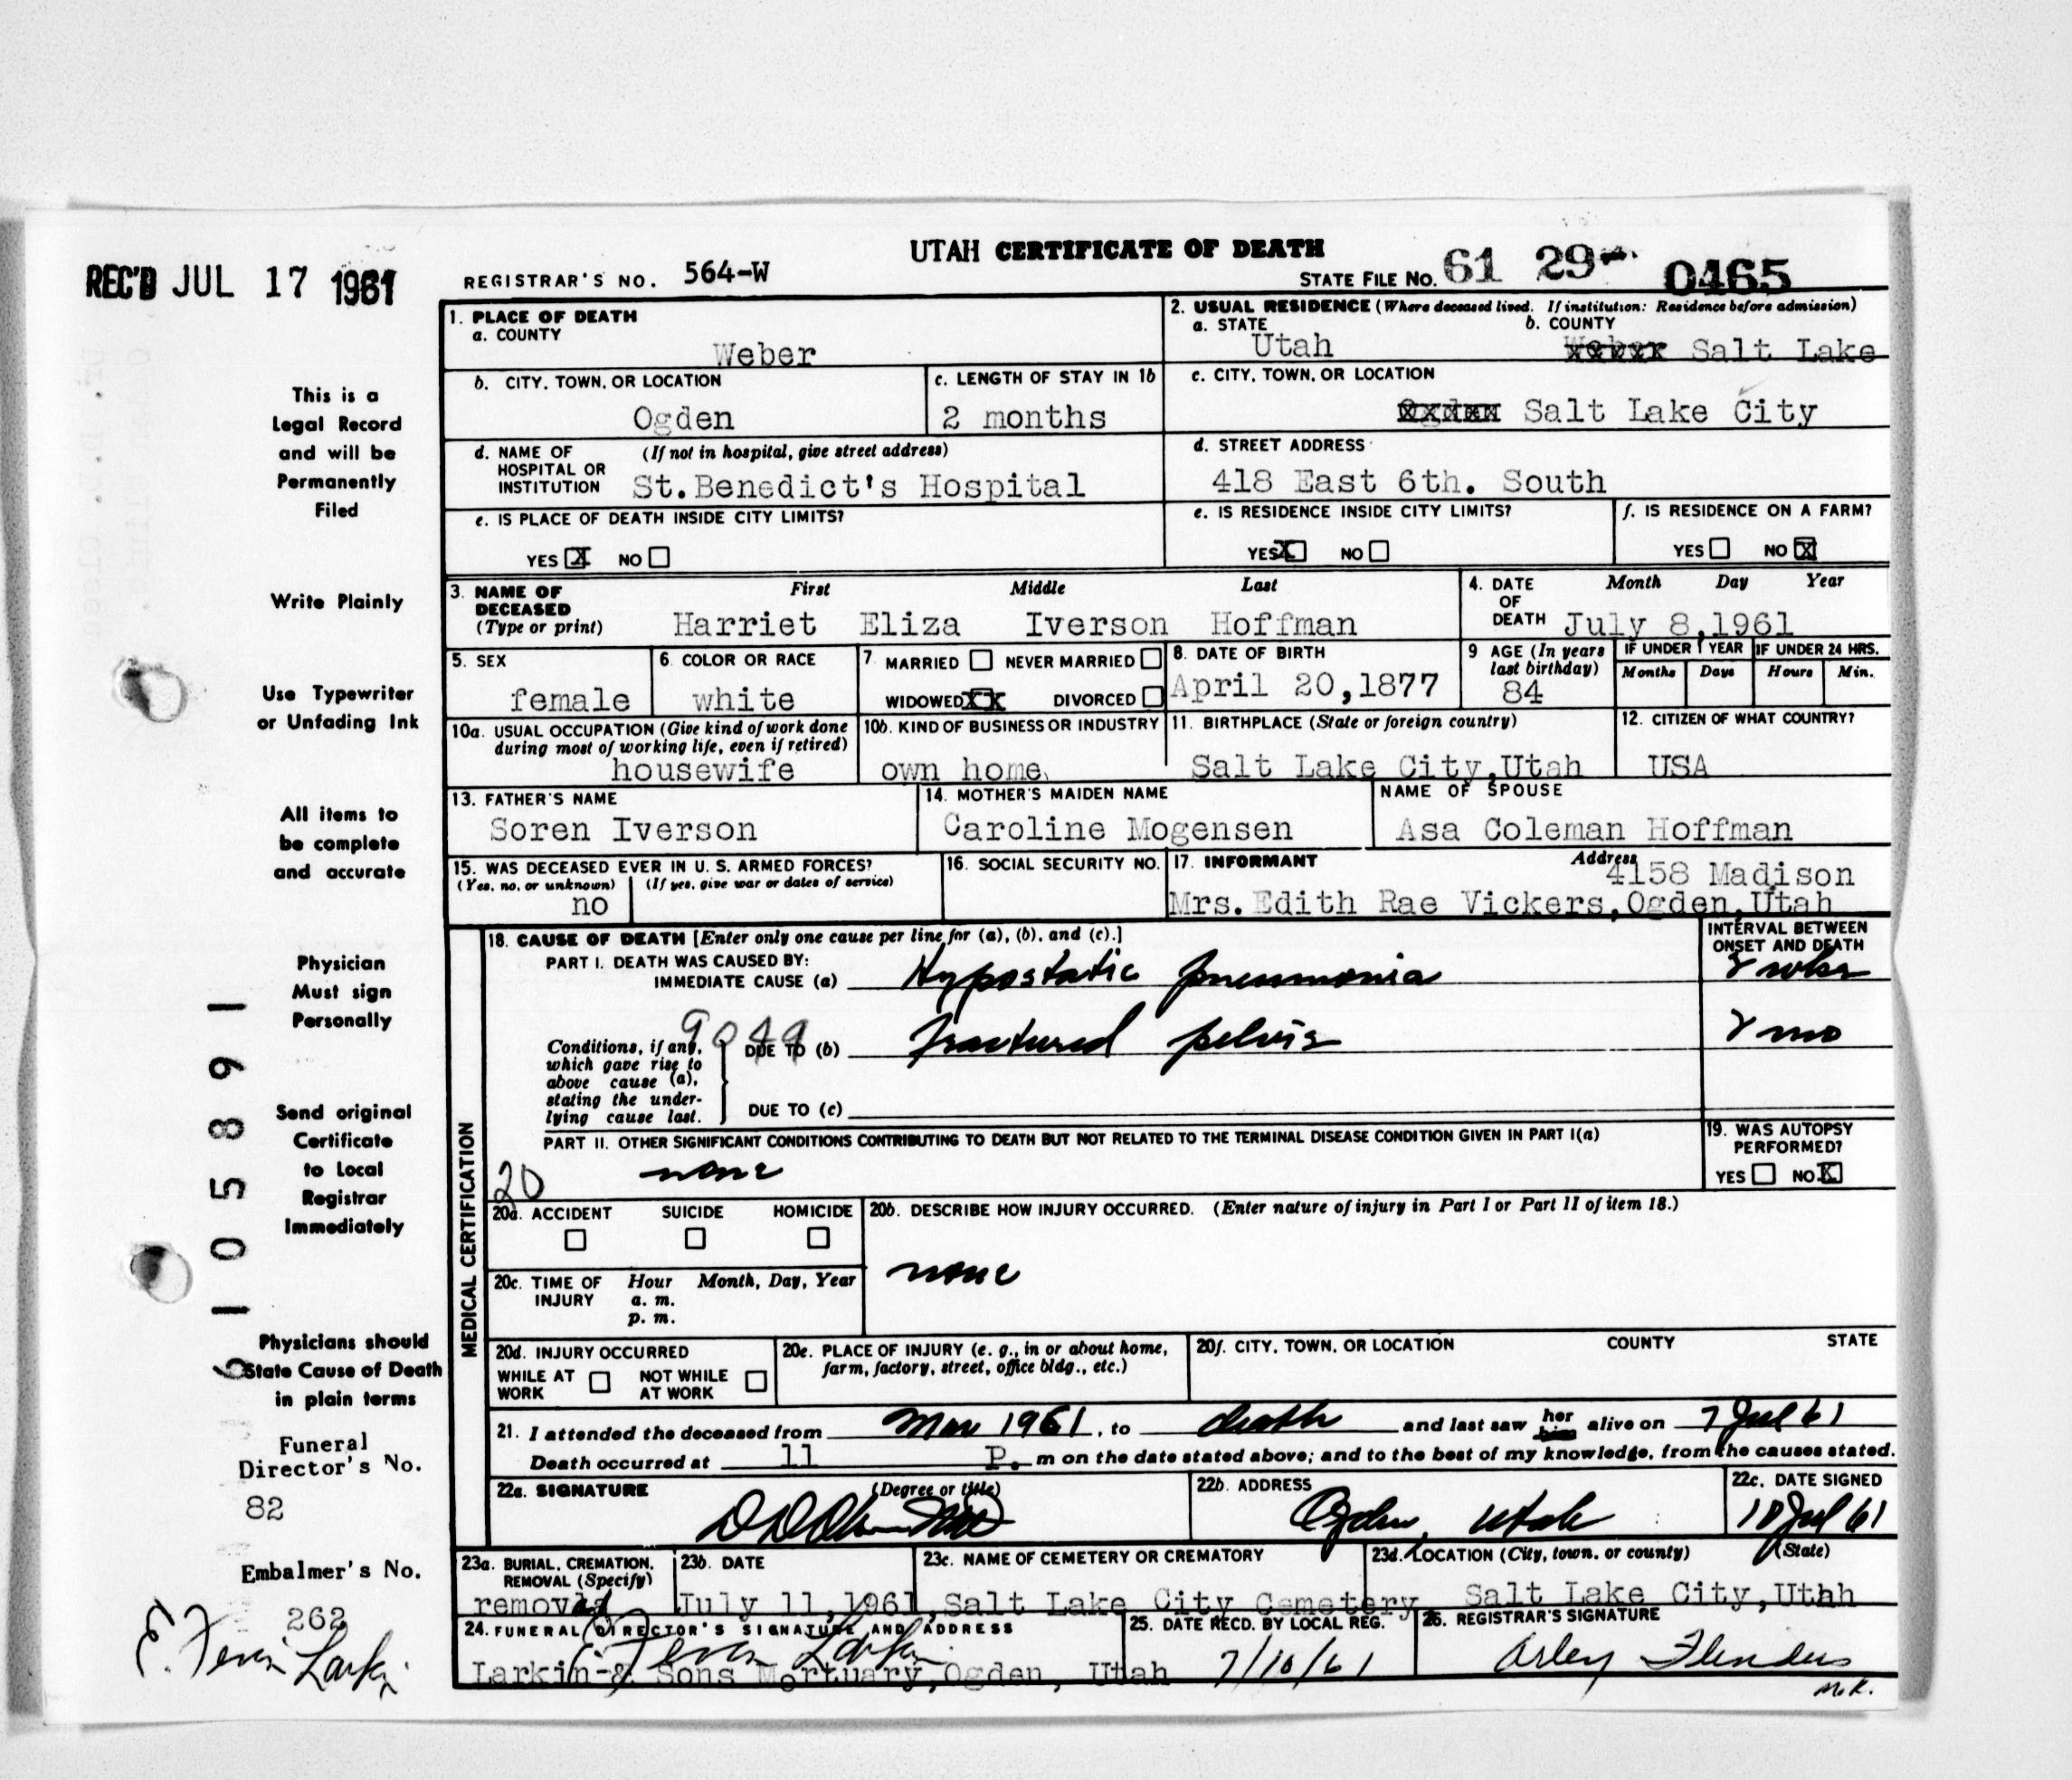 UTAH CERTIFICATE OF DEATH
REC'D JUL 17 1961
REGISTRAR'S NO. 564-W
STATE FILE NO. 61 29 0465
1. PLACE OF DEATH
a. COUNTY
Weber
2. USUAL RESIDENCE (Where deceased lived. If institution: Residence before admission)
a. STATE b. COUNTY
Utah Salt Lake
b. CITY, TOWN, OR LOCATION
Ogden
c. LENGTH OF STAY IN 1b
2 months
c. CITY, TOWN, OR LOCATION
Salt Lake City
d. NAME OF HOSPITAL OR INSTITUTION (If not in hospital, give street address)
St.Benedict's Hospital
d. STREET ADDRESS
418 East 6th. South
e. IS PLACE OF DEATH INSIDE CITY LIMITS?
YES X NO
e. IS RESIDENCE INSIDE CITY LIMITS?
YES X NO
f. IS RESIDENCE ON A FARM?
YES NO X
3. NAME OF DECEASED (Type or print)
First Middle Last
Harriet Eliza Iverson Hoffman
4. DATE OF DEATH
Month Day Year
July 8,1961
5. SEX
female
6. COLOR OR RACE
white
7. MARRIED NEVER MARRIED
WIDOWED XX DIVORCED
8. DATE OF BIRTH
April 20,1877
9. AGE (In years last birthday)
84
IF UNDER 1 YEAR
Months Days
IF UNDER 24 HRS.
Hours Min.
10a. USUAL OCCUPATION (Give kind of work done during most of working life, even if retired)
housewife
10b. KIND OF BUSINESS OR INDUSTRY
own home
11. BIRTHPLACE (State or foreign country)
Salt Lake City,Utah
12. CITIZEN OF WHAT COUNTRY?
USA
13. FATHER'S NAME
Soren Iverson
14. MOTHER'S MAIDEN NAME
Caroline Mogensen
NAME OF SPOUSE
Asa Coleman Hoffman
15. WAS DECEASED EVER IN U. S. ARMED FORCES?
(Yes, no, or unknown) (If yes, give war or dates of service)
no
16. SOCIAL SECURITY NO.
17. INFORMANT Address
4158 Madison
Mrs. Edith Rae Vickers,Ogden,Utah
MEDICAL CERTIFICATION
18. CAUSE OF DEATH [Enter only one cause per line for (a), (b), and (c).]
INTERVAL BETWEEN ONSET AND DEATH
PART I. DEATH WAS CAUSED BY:
IMMEDIATE CAUSE (a) Hypostatic pneumonia 2 wks
9049
Conditions, if any, which gave rise to above cause (a), stating the underlying cause last.
DUE TO (b) fractured pelvis 2 mo
DUE TO (c)
PART II. OTHER SIGNIFICANT CONDITIONS CONTRIBUTING TO DEATH BUT NOT RELATED TO THE TERMINAL DISEASE CONDITION GIVEN IN PART I(a)
20 none
19. WAS AUTOPSY PERFORMED?
YES NO X
20a. ACCIDENT SUICIDE HOMICIDE
20b. DESCRIBE HOW INJURY OCCURRED. (Enter nature of injury in Part I or Part II of item 18.)
none
20c. TIME OF INJURY Hour Month, Day, Year
a. m.
p. m.
20d. INJURY OCCURRED
WHILE AT WORK NOT WHILE AT WORK
20e. PLACE OF INJURY (e. g., in or about home, farm, factory, street, office bldg., etc.)
20f. CITY, TOWN, OR LOCATION COUNTY STATE
21. I attended the deceased from Mar 1961, to death and last saw her him alive on 7 Jul 61
Death occurred at 11 P. m on the date stated above; and to the best of my knowledge, from the causes stated.
22a. SIGNATURE (Degree or title)
22b. ADDRESS
Ogden, Utah
22c. DATE SIGNED
10 Jul 61
23a. BURIAL, CREMATION, REMOVAL (Specify)
removal
23b. DATE
July 11,1961
23c. NAME OF CEMETERY OR CREMATORY
Salt Lake City Cemetery
23d. LOCATION (City, town, or county) (State)
Salt Lake City,Utah
24. FUNERAL DIRECTOR'S SIGNATURE AND ADDRESS
Larkin & Sons Mortuary,Ogden, Utah
25. DATE RECD. BY LOCAL REG.
7/10/61
26. REGISTRAR'S SIGNATURE
Arley Flinders
M.K.
This is a
Legal Record
and will be
Permanently
Filed
Write Plainly
Use Typewriter
or Unfading Ink
All items to
be complete
and accurate
Physician
Must sign
Personally
Send original
Certificate
to Local
Registrar
Immediately
Physicians should
State Cause of Death
in plain terms
Funeral
Director's No.
82
Embalmer's No.
262
6 1 0 5 8 9 1